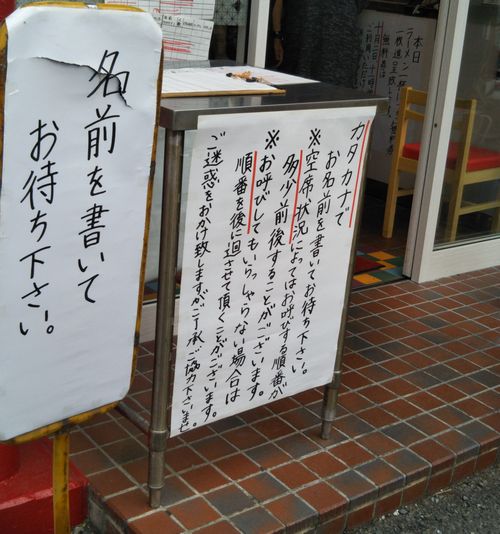 名前を書いて
お待ち下さい。
カタカナで
お名前を書いてお待ち下さい。
※空席状況によってはお呼びする順番が
多少前後することがございます。
※お呼びしてもいらっしゃらない場合は
順番を後に廻させて頂くことがございます。
ご迷惑をおかけ致しますがご了承ご協力下さいませ
本日
ラーメン一杯につき